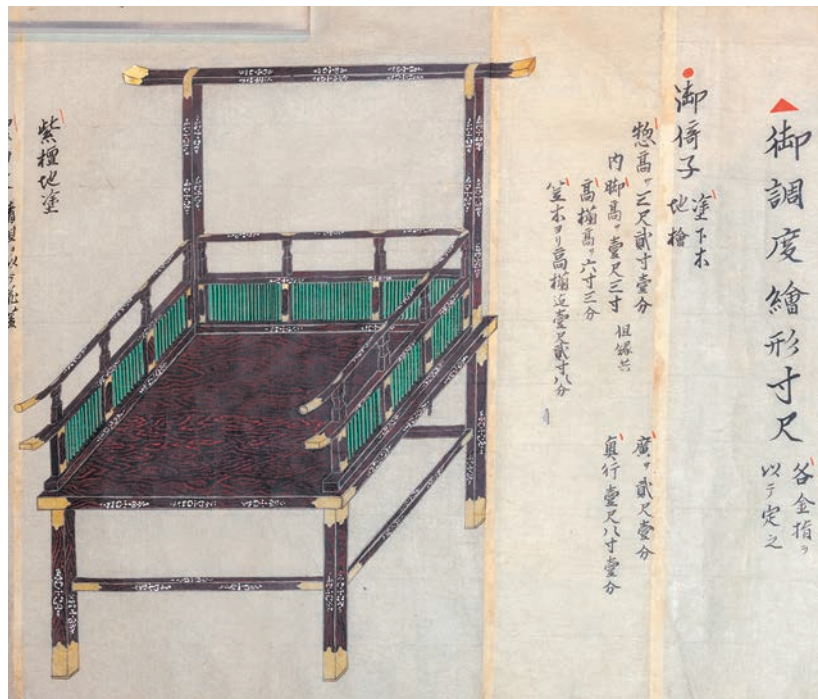 御調度繪形寸尺
各金指ヲ
以テ定之
御倚子
塗下木
地檜
惣高サ三尺貳寸壹分
内脚高サ壹尺三寸
但縁共
高欄高サ六寸三分
笠木ヨリ高欄迄壹尺貳寸八分
廣サ貳尺壹分
奥行壹尺八寸壹分
紫檀地塗